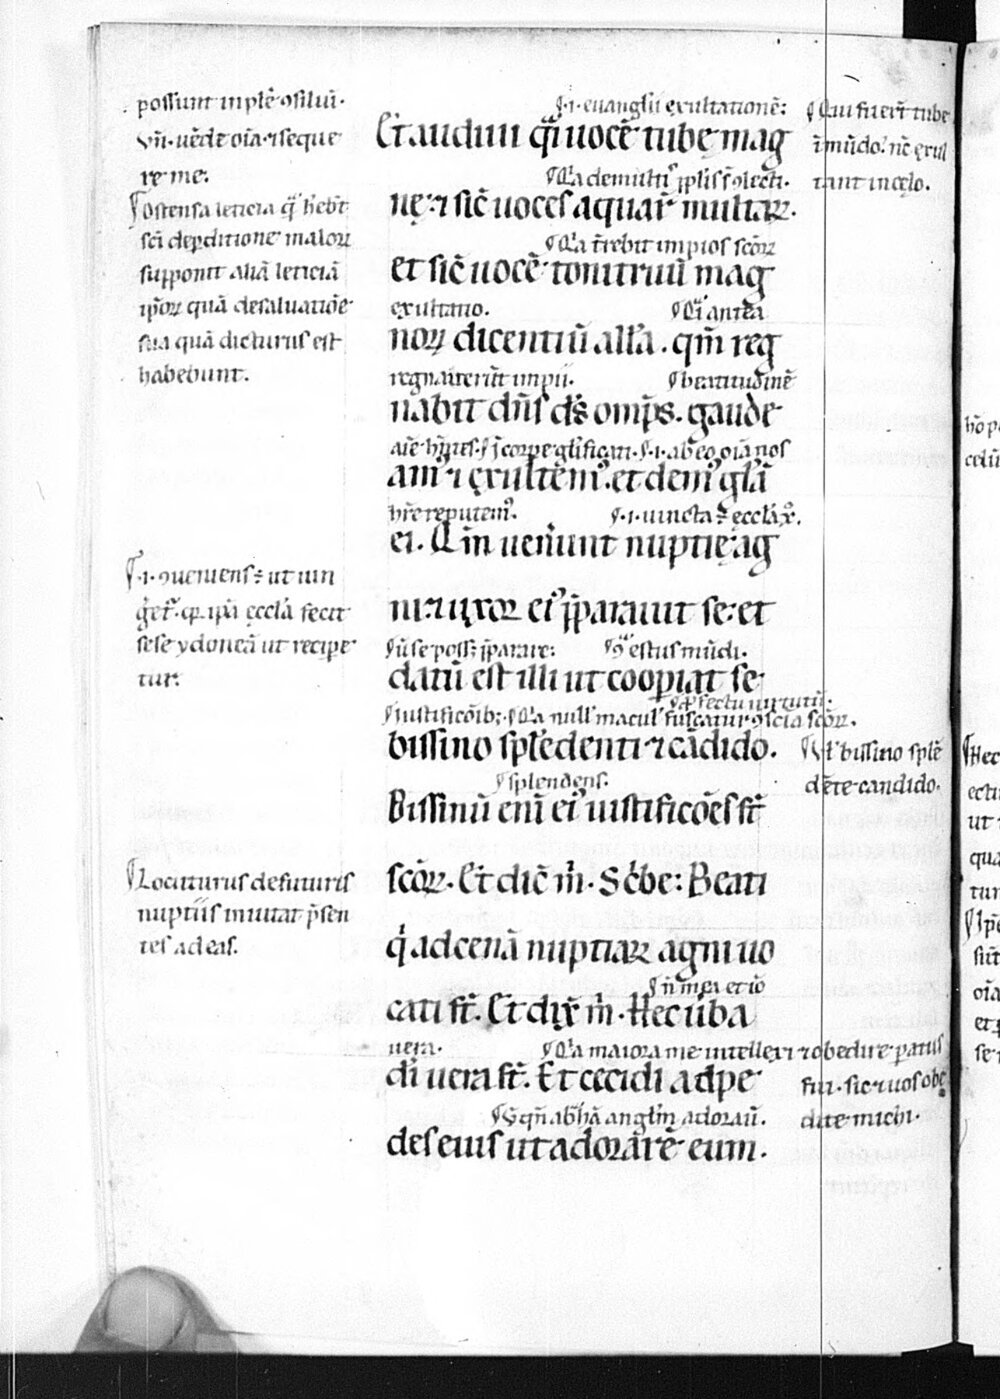 possunt inplē ↄsiluī.
Vñ. uēdē oīa ⁊ seque
re me.
Ostensa leticia q̄ hēbt̄
scī de ꝑditione maloꝝ
supponit aliā leticiā
ip̄oꝝ quā de saluatiōe
sua quā dicturus est
habebunt.
.i. ↄueniens: ut iun
get̄. ip̄a ecclā fecit
sese ydoneā ut recipe
tur.
Locuturus de futuris
nuptiis inuitat p̄sen
tes ad eas.
.i. euanglii exultationē:
Et audiui q̄i uocē tubę mag
Q̄a de multis pp̄lis ē ↄlecta.
nę: ⁊ sic̄ uoces aquaꝝ multaꝝ.
Q̄a t̄rebit impios scōꝝ
et sic̄ uocē tonitruū mag
exultatio. antea
noꝝ dicentiū all'a. qm̄ reg
regnauerūt impii. beatitudinē
nabit dn̄s ds̄ omp̄s. gaude
aīe corpe glīficati .i. ab eo oīa nos
am' ⁊ exultem'. et dem' glā
hr̄e reputem'. .i. iuncta ē ecclā x̄o.
ei. Q̄m uenerunt nuptię ag
ni: ⁊ uxoꝝ ei' p̄parauit se: et
se poss p̄parare: estus mūdi.
datū est illi ut coopiat se
ꝓfectu uirtutū.
iustificōib; Q̄a null' macul' fuscatur ↄsciā scōꝝ.
bissino splēdenti ⁊ cādido.
splendens.
Bissinū enī ei' iustificōes sт̄
scōꝝ. Et dic̄ m̄. Scͥbe: Beati
q̇ ad cenā nuptiaꝝ agni uo
n̄ mea et iō
cati st̄. Et dix̄ m̄. Hec ūba
uera. Q̄a maiora me intellexi ⁊ obedire paratus
dī uera st̄. Et cecidi ad pe
abhā anglm̄ adorau.
des eius ut adorarē eum.
Qui fuerīt tube
ī mūdo: nc̄ exul
tant in cęlo.
Vl' bissino splē
dēte candido.
fui. sic ⁊ uos obe
dite michi.